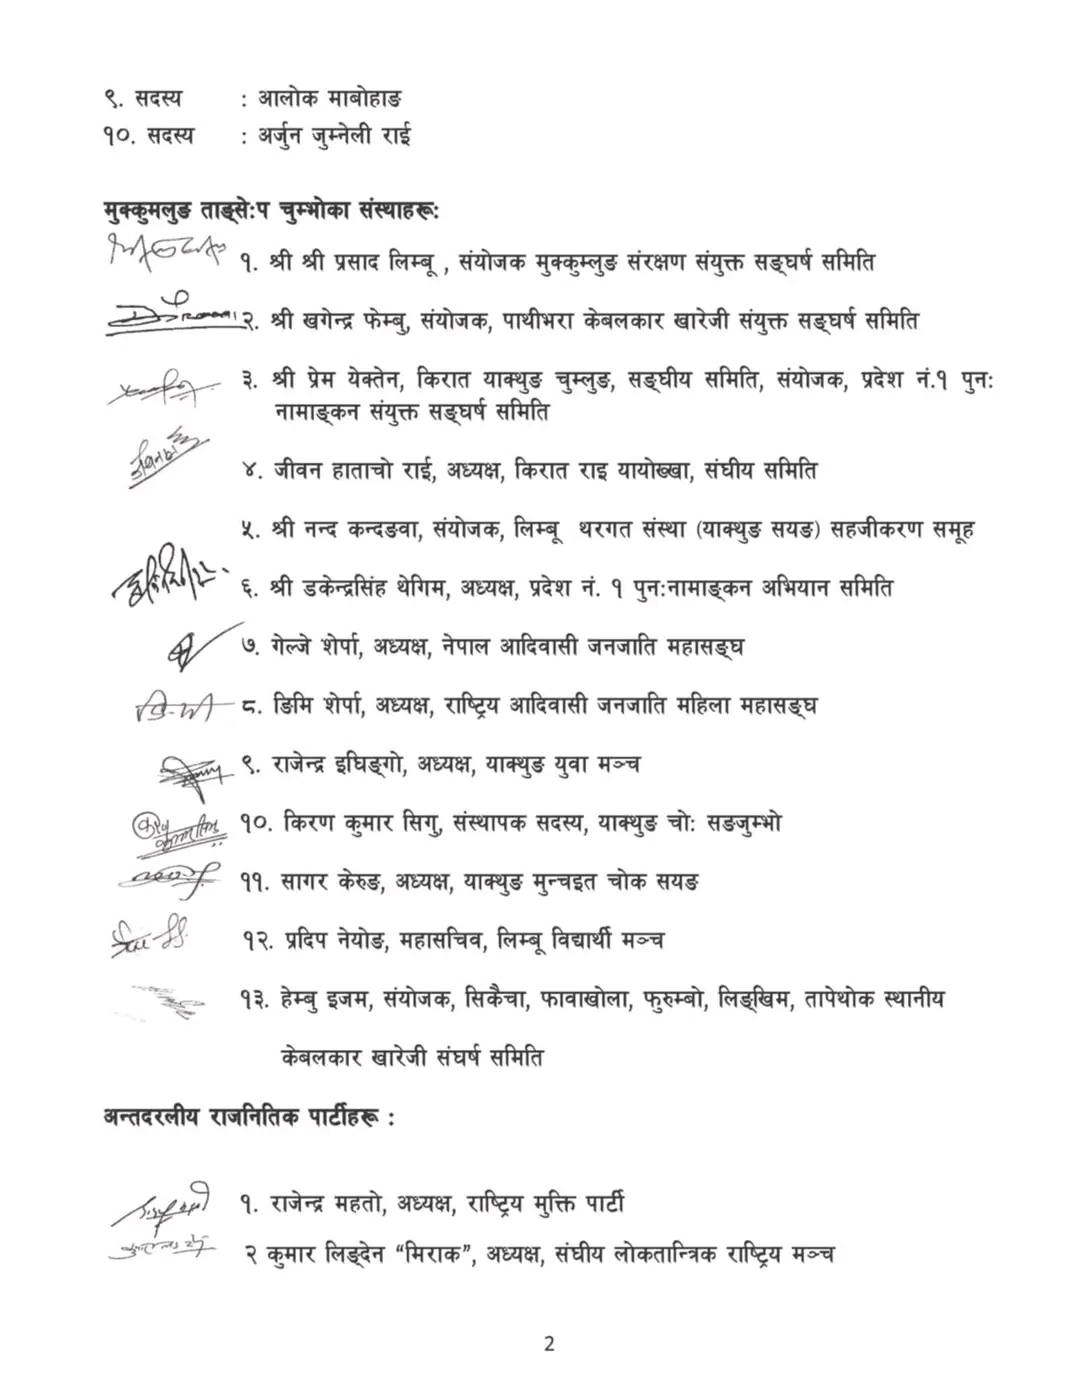 ९. सदस्य : आलोक माबोहाङ
१०. सदस्य : अर्जुन जुम्नेली राई
मुक्कुमलुङ ताङ्से:प चुम्भोका संस्थाहरू:
१. श्री श्री प्रसाद लिम्बू , संयोजक मुक्कुम्लुङ संरक्षण संयुक्त सङ्घर्ष समिति
२. श्री खगेन्द्र फेम्बु, संयोजक, पाथीभरा केबलकार खारेजी संयुक्त सङ्घर्ष समिति
३. श्री प्रेम येक्तेन, किरात याक्थुङ चुम्लुङ, सङ्घीय समिति, संयोजक, प्रदेश नं.१ पुन:
नामाङ्कन संयुक्त सङ्घर्ष समिति
४. जीवन हाताचो राई, अध्यक्ष, किरात राइ यायोख्खा, संघीय समिति
५. श्री नन्द कन्दङवा, संयोजक, लिम्बू थरगत संस्था (याक्थुङ सयङ) सहजीकरण समूह
६. श्री डकेन्द्रसिंह थेगिम, अध्यक्ष, प्रदेश नं. १ पुन:नामाङ्कन अभियान समिति
७. गेल्जे शेर्पा, अध्यक्ष, नेपाल आदिवासी जनजाति महासङ्घ
८. ङिमि शेर्पा, अध्यक्ष, राष्ट्रिय आदिवासी जनजाति महिला महासङ्घ
९. राजेन्द्र इघिङ्गो, अध्यक्ष, याक्थुङ युवा मञ्च
१०. किरण कुमार सिगु, संस्थापक सदस्य, याक्थुङ चो: सङजुम्भो
११. सागर केरुङ, अध्यक्ष, याक्थुङ मुन्चइत चोक सयङ
१२. प्रदिप नेयोङ, महासचिव, लिम्बू विद्यार्थी मञ्च
१३. हेम्बु इजम, संयोजक, सिकैचा, फावाखोला, फुरुम्बो, लिङ्खिम, तापेथोक स्थानीय
केबलकार खारेजी संघर्ष समिति
अन्तदरलीय राजनितिक पार्टीहरू :
१. राजेन्द्र महतो, अध्यक्ष, राष्ट्रिय मुक्ति पार्टी
२ कुमार लिङ्देन “मिराक”, अध्यक्ष, संघीय लोकतान्त्रिक राष्ट्रिय मञ्च
2